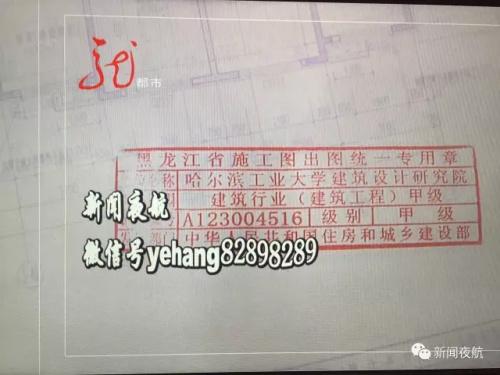 都市
黑龙江省施工图出图统一专用章
哈尔滨工业大学建筑设计研究院
建筑行业（建筑工程）甲级
A123004516 级别 甲级
中华人民共和国住房和城乡建设部
新闻夜航
微信号yehang82898289
新闻夜航